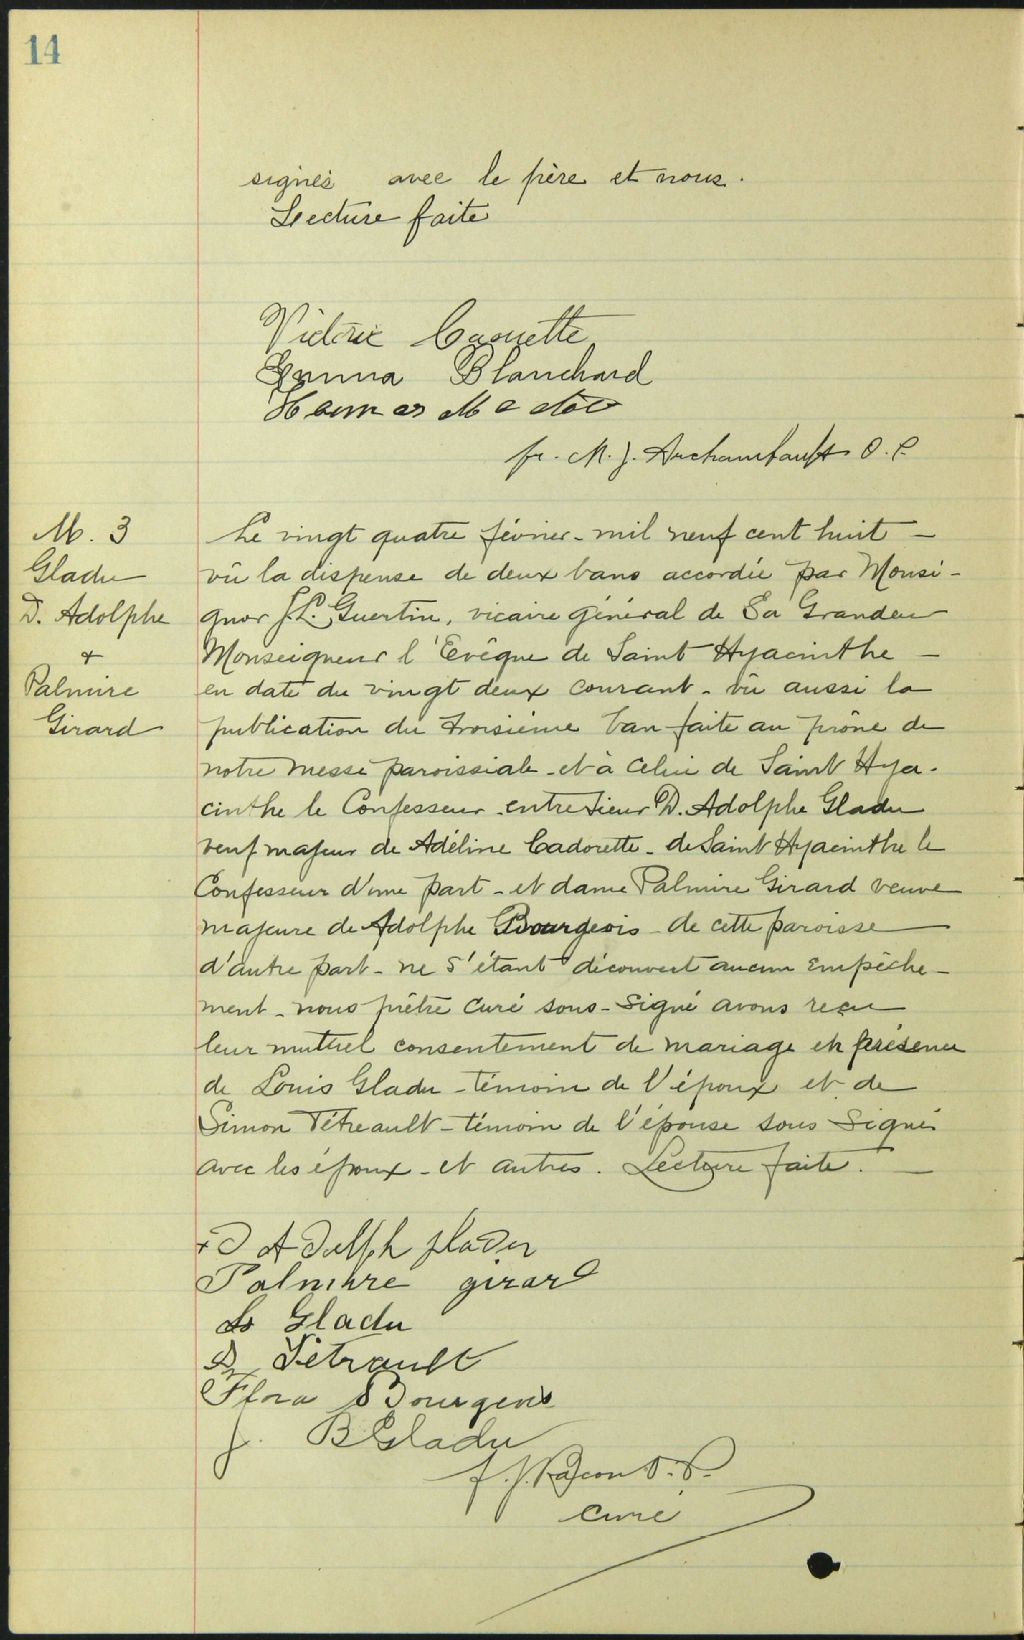 14
signés avec le père et nous.
Lecture faite
Victorie Caouette
Emma Blanchard
fr. M. J. Archambault O. P.
M. 3
Gladu
D. Adolphe
+
Palmire
Girard
Le vingt quatre février - mil neuf cent huit -
vû la dispense de deux bans accordée par Monsi-
gnor J. L. Guertin, vicaire général de Sa Grandeur
Monseigneur l'Evêque de Saint Hyacinthe -
en date du vingt deux courant - vû aussi la
publication du troisième ban faite au prône de
notre messe paroissiale - et à celui de Saint Hya-
cinthe le Confesseur - entre Sieur D. Adolphe Gladu
veuf majeur de Adéline Cadorette - de Saint Hyacinthe le
Confesseur d'une part - et dame Palmire Girard veuve
majeure de Adolphe Bourgeois - de cette paroisse
d'autre part - ne s'étant découvert aucun empêche-
ment - nous prêtre curé sous-signé avons reçu
leur mutuel consentement de mariage en présence
de Louis Gladu - témoin de l'époux et de
Simon Tétreault - témoin de l'épouse sous signés
avec les époux - et autres. Lecture faite. -
+ D Adolph gladu
Palmire girard
Ls Gladu
Tétrault
Flora Bourgeois
J. B Gladu
curé